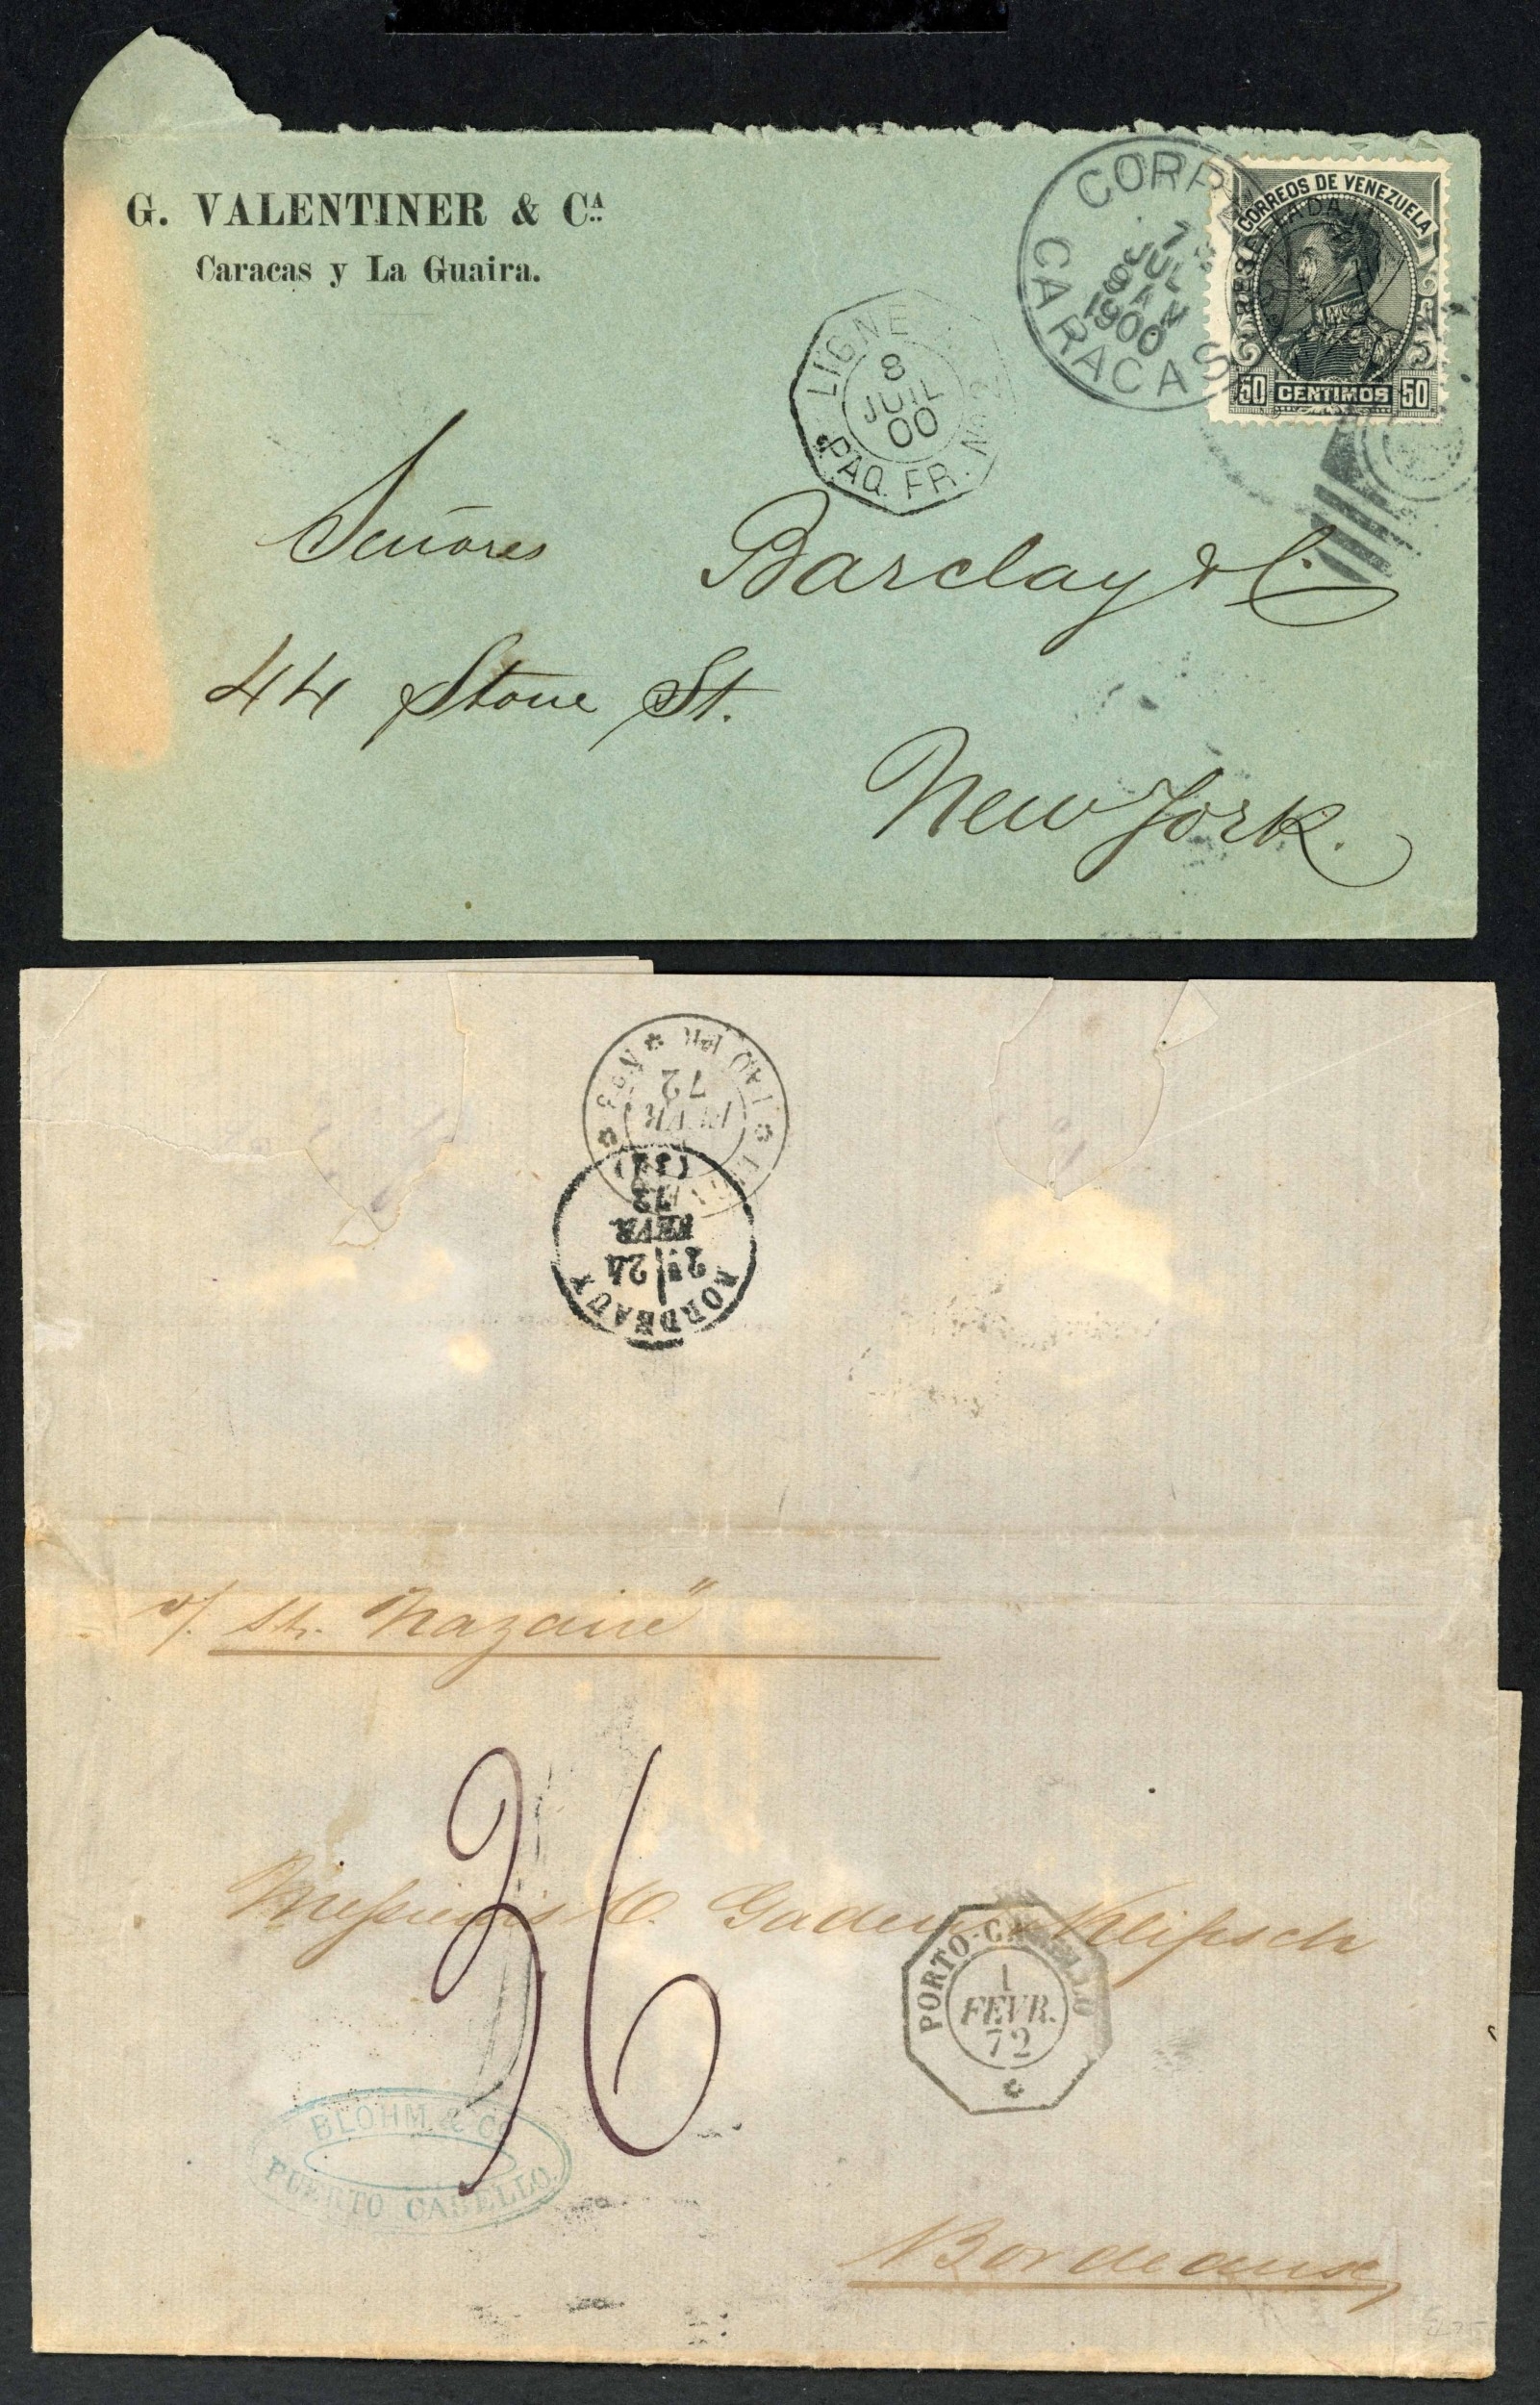 G. VALENTINER & Cª.
Caracas y La Guaira.
CORREOS DE VENEZUELA
RESELLADA
50 CENTIMOS 50
CARACAS
7
JUL
8 AM
1900
LIGNE
8
JUIL
00
PAQ. FR. No 2
Señores Barclay & C.
44 Stone St.
New York.
PAQ. FR. No 3
FEVR
72
BORDEAUX
2E/24
FEVR
(32)
v/. St. Nazaire"
36
Messieurs C. Gaden & Klipsch
PORTO-CABELLO
1
FEVR.
72
BLOHM & CO
PUERTO CABELLO.
Bordeaux